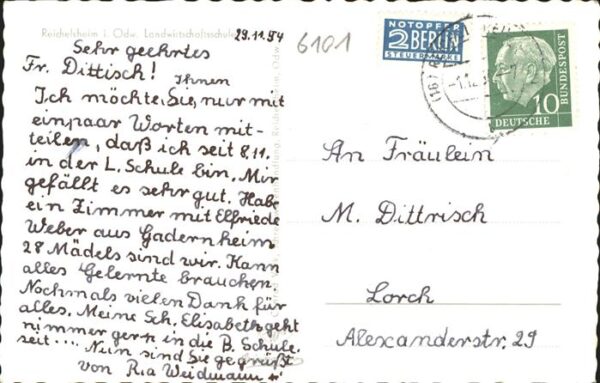 Reichelsheim i. Odw. Landwirtschaftsschule
29.11.54
6101
Sehr geehrtes
Fr. Dittisch!
Ihnen
Ich möchte Sie, nur mit
ein paar Worten mit-
teilen, daß ich seit 8.11.
in der L. Schule bin. Mir
gefällt es sehr gut. Habe
ein Zimmer mit Elfriede
Weber aus Gadernheim
28 Mädels sind wir. Kann
alles Gelernte brauchen.
Nochmals vielen Dank für
alles. Meine Sch. Elisabeth geht
nimmer gern in die B. Schule.
seit.... Nun sind Sie gegrüßt
von Ria Weidmann
NOTOPFER
2 BERLIN
STEUERMARKE
10
DEUTSCHE
BUNDESPOST
An Fräulein
M. Dittrisch
Lorch
Alexanderstr. 29